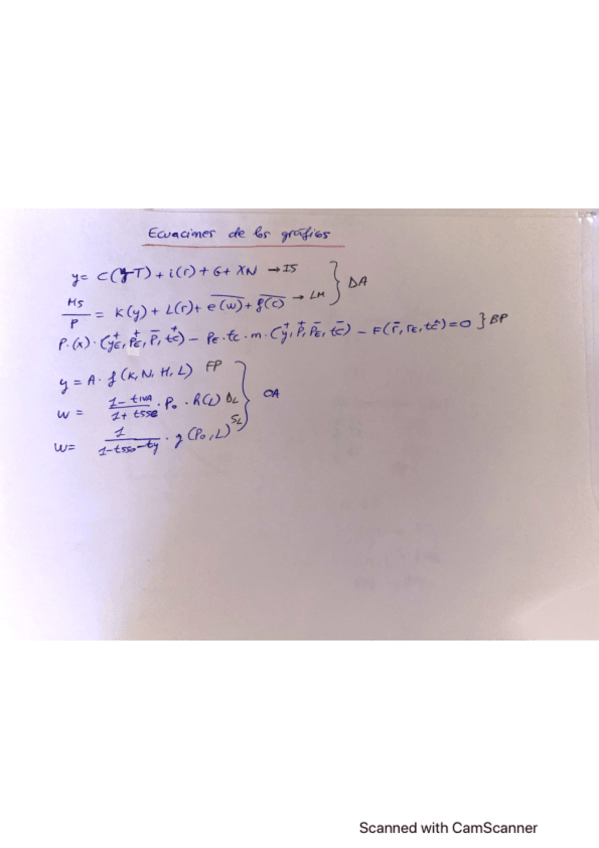 Ecuaciones de los gráficos
y = C(y-T) + i(r) + G + XN → IS } DA
Ms/P = K(y) + L(r) + e(w) + f(c) → LM
P·(x)·(yE⁺, PE⁺, P⁻, tc⁺) − PE·tc·m·(y⁺, P⁺, PE⁻, tc⁻) − F(r⁻, rE, tc) = 0 } BP
y = A·f(K, N, H, L) FP
w = 1-tIVA/1+tSSE · Po · h(L) DL } OA
w = 1/1-tsso-ty · g(Po, L) SL
Scanned with CamScanner